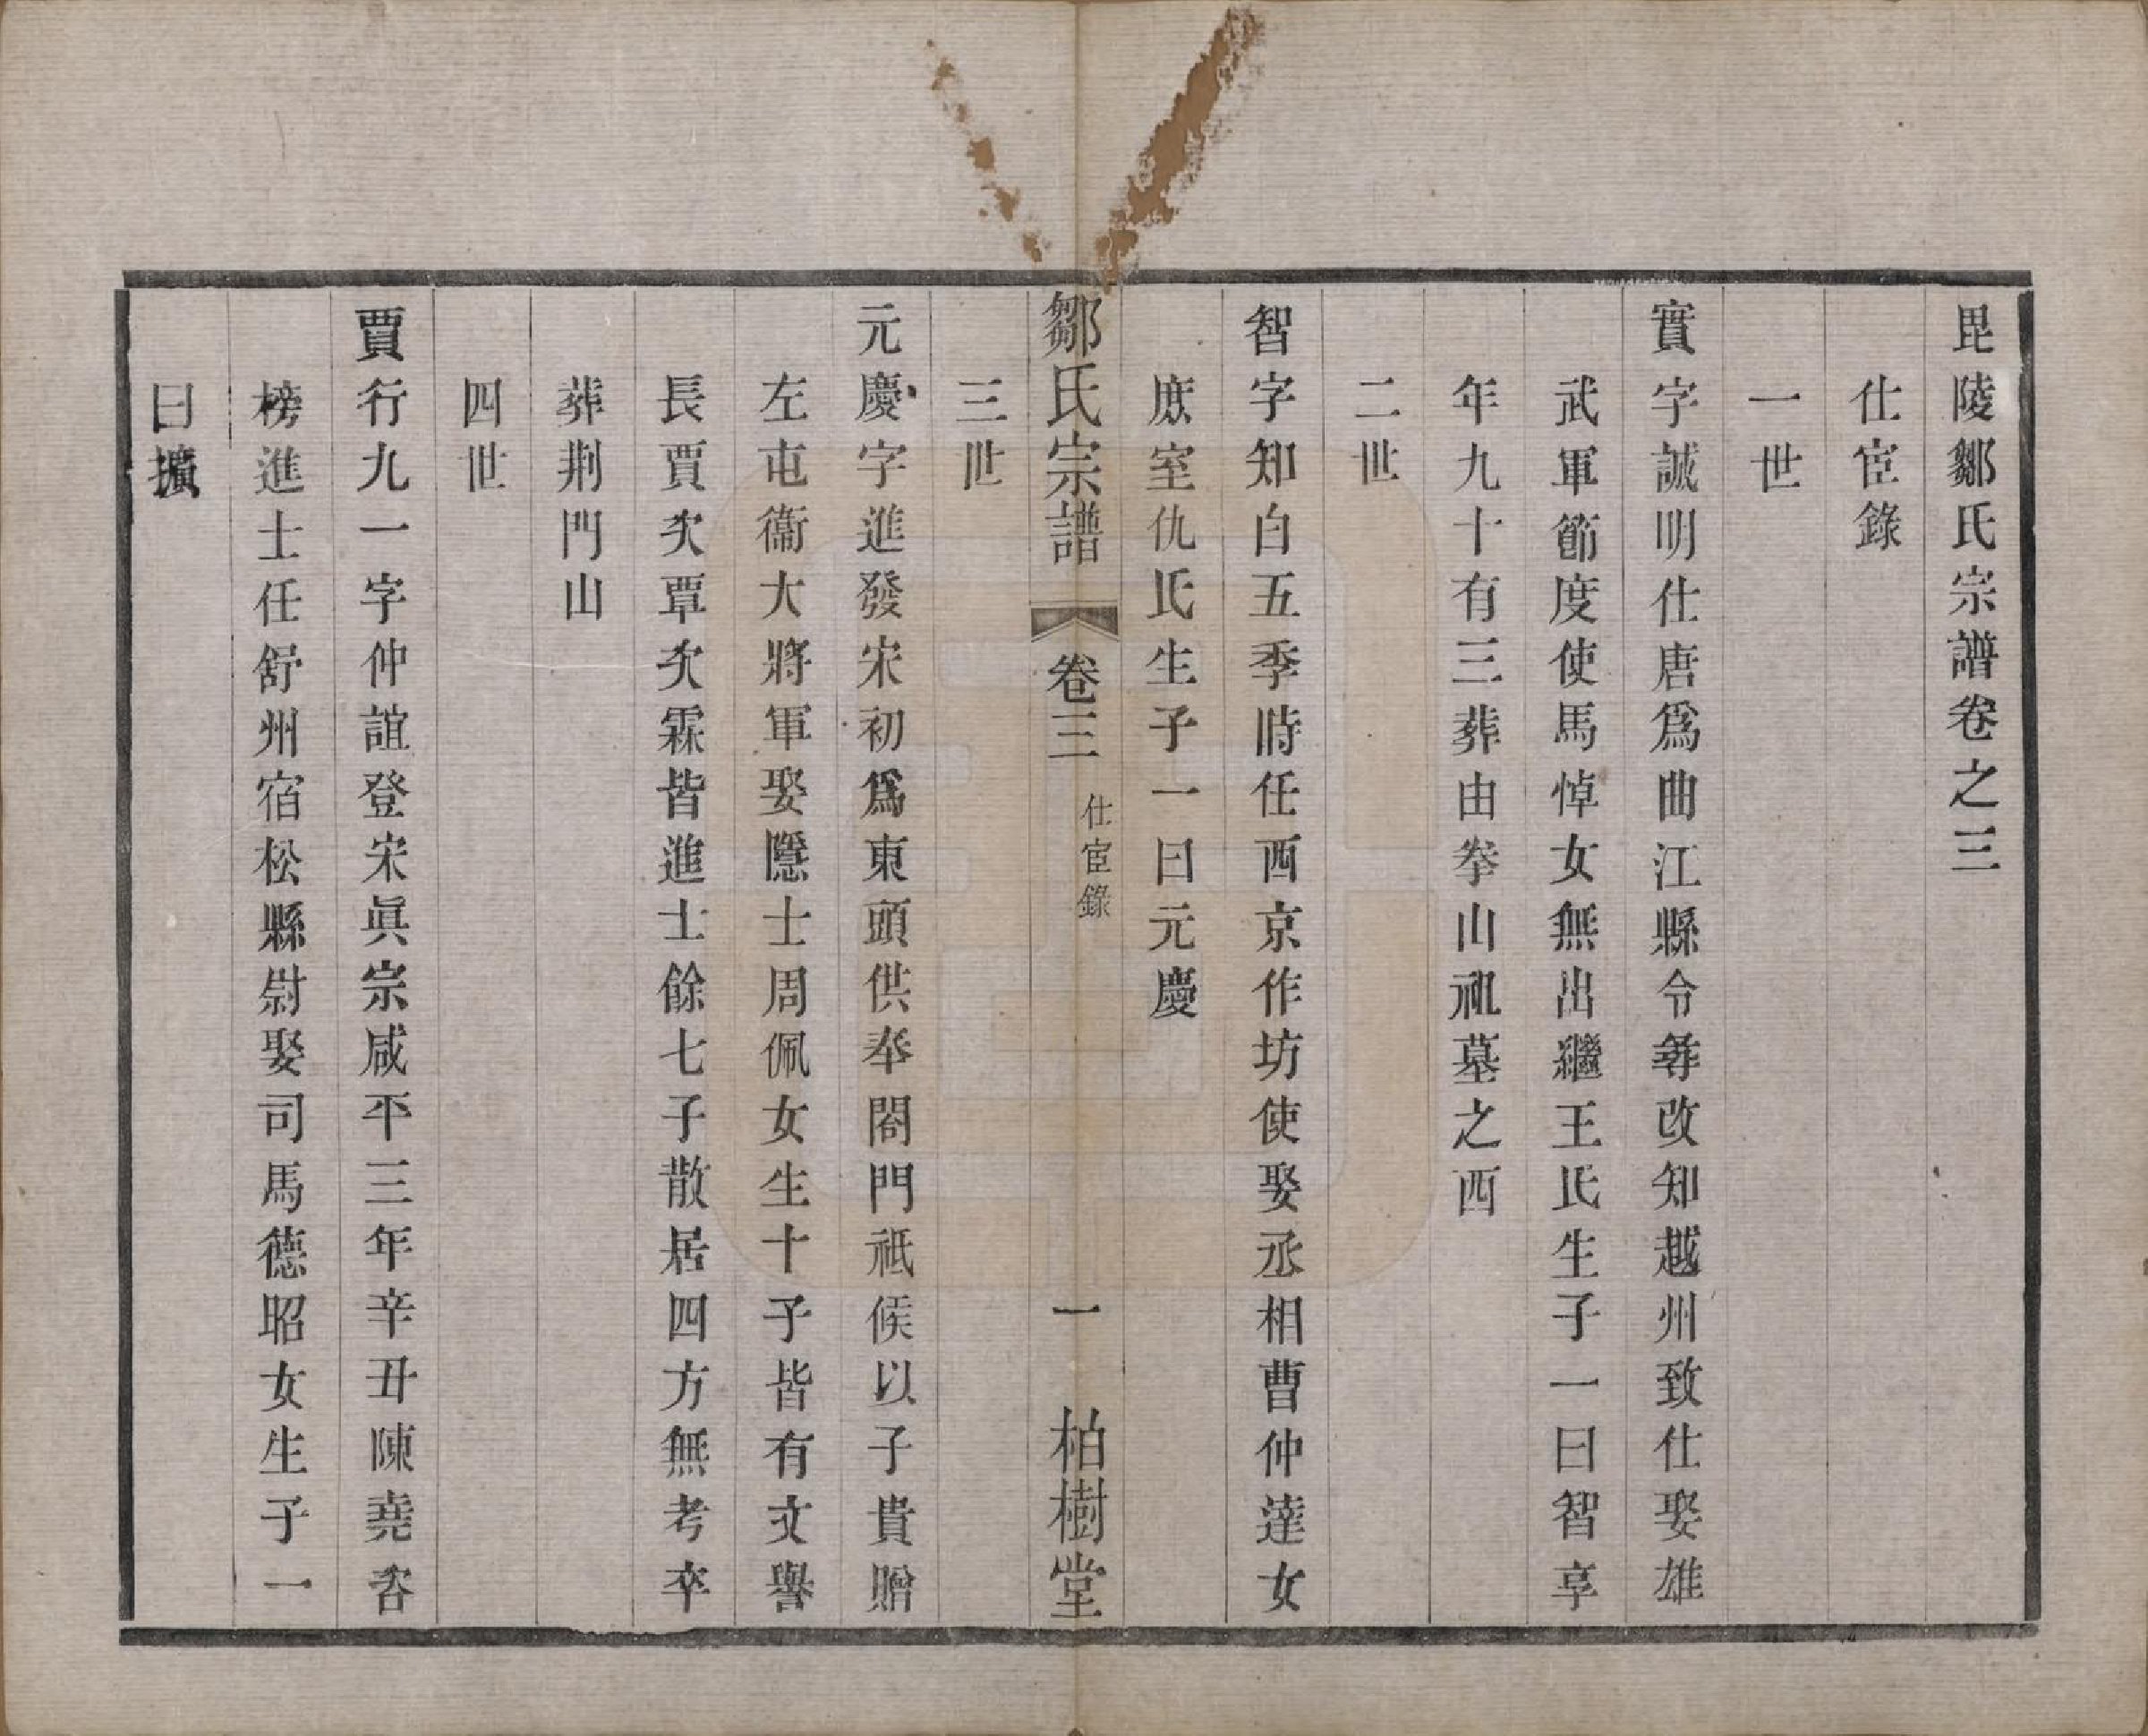 毘陵鄒氏宗譜卷之三
仕宦錄
一世
實字誠明仕唐爲曲江縣令尋改知越州致仕娶雄
武軍節度使馬悼女無出繼王氏生子一曰智享
年九十有三葬由拳山祖墓之西
二世
智字知白五季時任西京作坊使娶丞相曹仲達女
庶室仇氏生子一曰元慶
鄒氏宗譜
卷三
仕宦錄
一
柏樹堂
三世
元慶字進發宋初爲東頭供奉閤門祗候以子貴贈
左屯衞大將軍娶隱士周佩女生十子皆有文譽
長賈次覃次霖皆進士餘七子散居四方無考卒
葬荆門山
四世
賈行九一字仲誼登宋眞宗咸平三年辛丑陳堯咨
榜進士任舒州宿松縣尉娶司馬德昭女生子一
曰擴